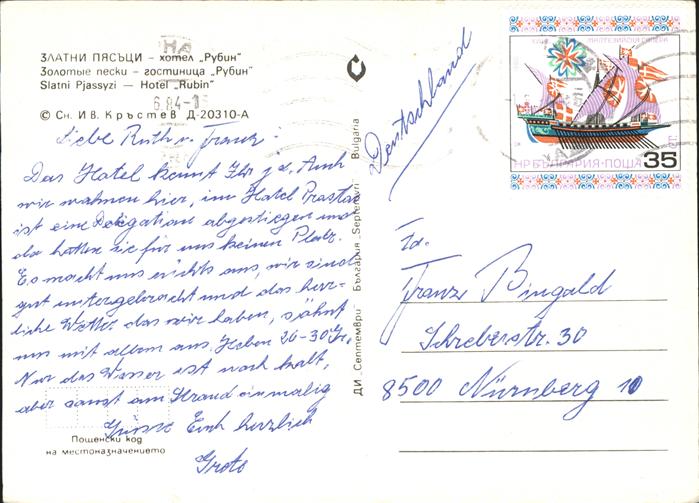 ЗЛАТНИ ПЯСЪЦИ – хотел „Рубин“
Золотые пески – гостиница „Рубин“
Slatni Pjassyzi — Hotel „Rubin“
6.84-1
© Сн. ИВ. Кръстев Д-20310-А
Liebe Ruth u. Franz!
Das Hotel kennt Ihr ja. Auch
wir wohnen hier, im Hotel
ist eine Delegation abgestiegen und
da hatten sie für uns keinen Platz.
Es macht uns nichts aus, wir sind
gut untergebracht und das herr-
liche Wetter das wir haben, söhnt
uns mit allem aus. Haben 26-30 Gr.
Nur das Wasser ist noch kalt,
aber sonst am Strand einmalig
Grüsse Euch herzlich
Grete
Пощенски код
на местоназначението
ДИ „Септември“ България „Septemvri“ Bulgaria
Deutschland
НРБЪЛГАРИЯ·ПОЩА 35
Fa.
Franz Bingold
Schreberstr. 30
8500 Nürnberg 10